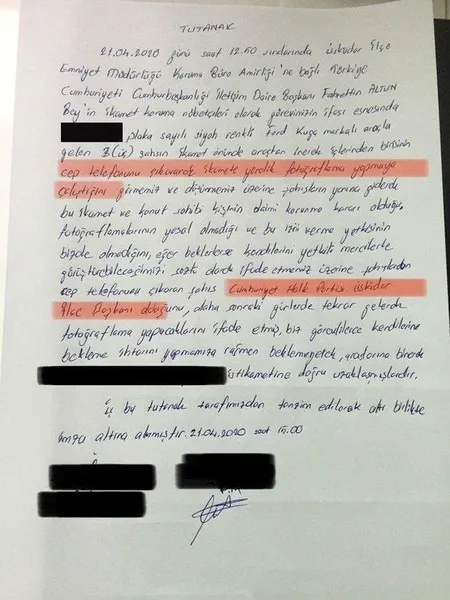 TUTANAK
21.04.2020 günü saat 12.50 sıralarında Üsküdar İlçe
Emniyet Müdürlüğü Koruma Büro Amirliği'ne bağlı Türkiye
Cumhuriyeti Cumhurbaşkanlığı İletişim Daire Başkanı Fahrettin ALTUN
Bey'in ikamet koruma nöbetçileri olarak görevimizin ifası esnasında
plaka sayılı siyah renkli Ford Kuga markalı araçla
gelen 3 (üç) şahsın ikamet önünde araçtan inerek içlerinden birisinin
cep telefonunu çıkararak ikamete yönelik fotoğraflama yapmaya
çalıştığını görmemiz ve üzerine şahısların yanına giderek
bu ikamet ve konut sahibi kişinin daimi korunma kararı olduğu,
fotoğraflamalarının yasal olmadığı ve bu izni verme yetkisinin
bizde olmadığını, eğer beklerlerse kendilerini yetkili mercilerle
görüştürebileceğimizi sözlü olarak ifade etmemiz üzerine şahıslardan
cep telefonunu çıkaran şahıs Cumhuriyet Halk Partisi Üsküdar
İlçe Başkanı olduğunu, daha sonraki günlerde tekrar gelerek
fotoğraflama yapacaklarını ifade etmiş, biz görevlilerce kendilerine
bekleme ihtarını yapmamıza rağmen beklemeyerek, araçlarına binerek
istikametine doğru uzaklaşmışlardır.
İş bu tutanak tarafımızdan tanzim edilerek altı birlikte
imza altına alınmıştır. 21.04.2020 saat 15.00